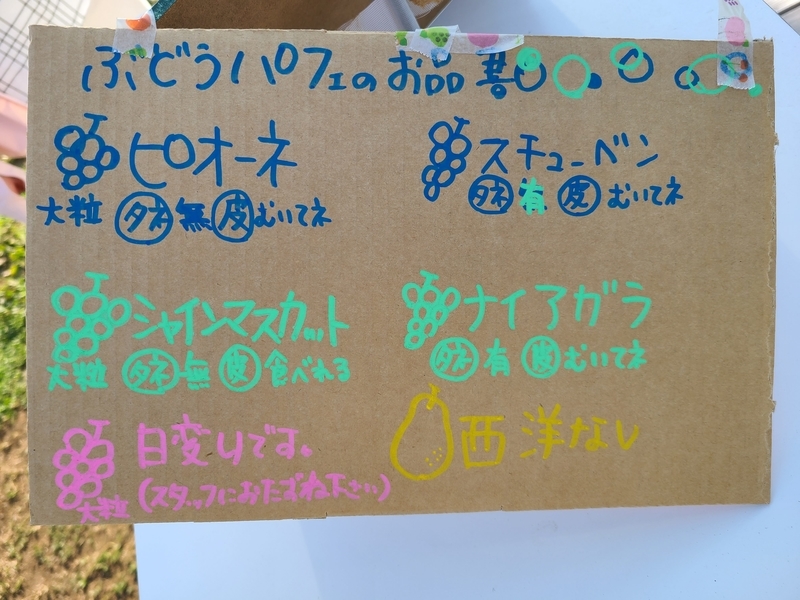 ぶどうパフェのお品書
ピオーネ
大粒 タネ無 皮むいてネ
スチューベン
タネ有 皮むいてネ
シャインマスカット
大粒 タネ無 皮食べれる
ナイアガラ
タネ有 皮むいてネ
日変りです。
大粒 (スタッフにおたずね下さい)
西洋なし